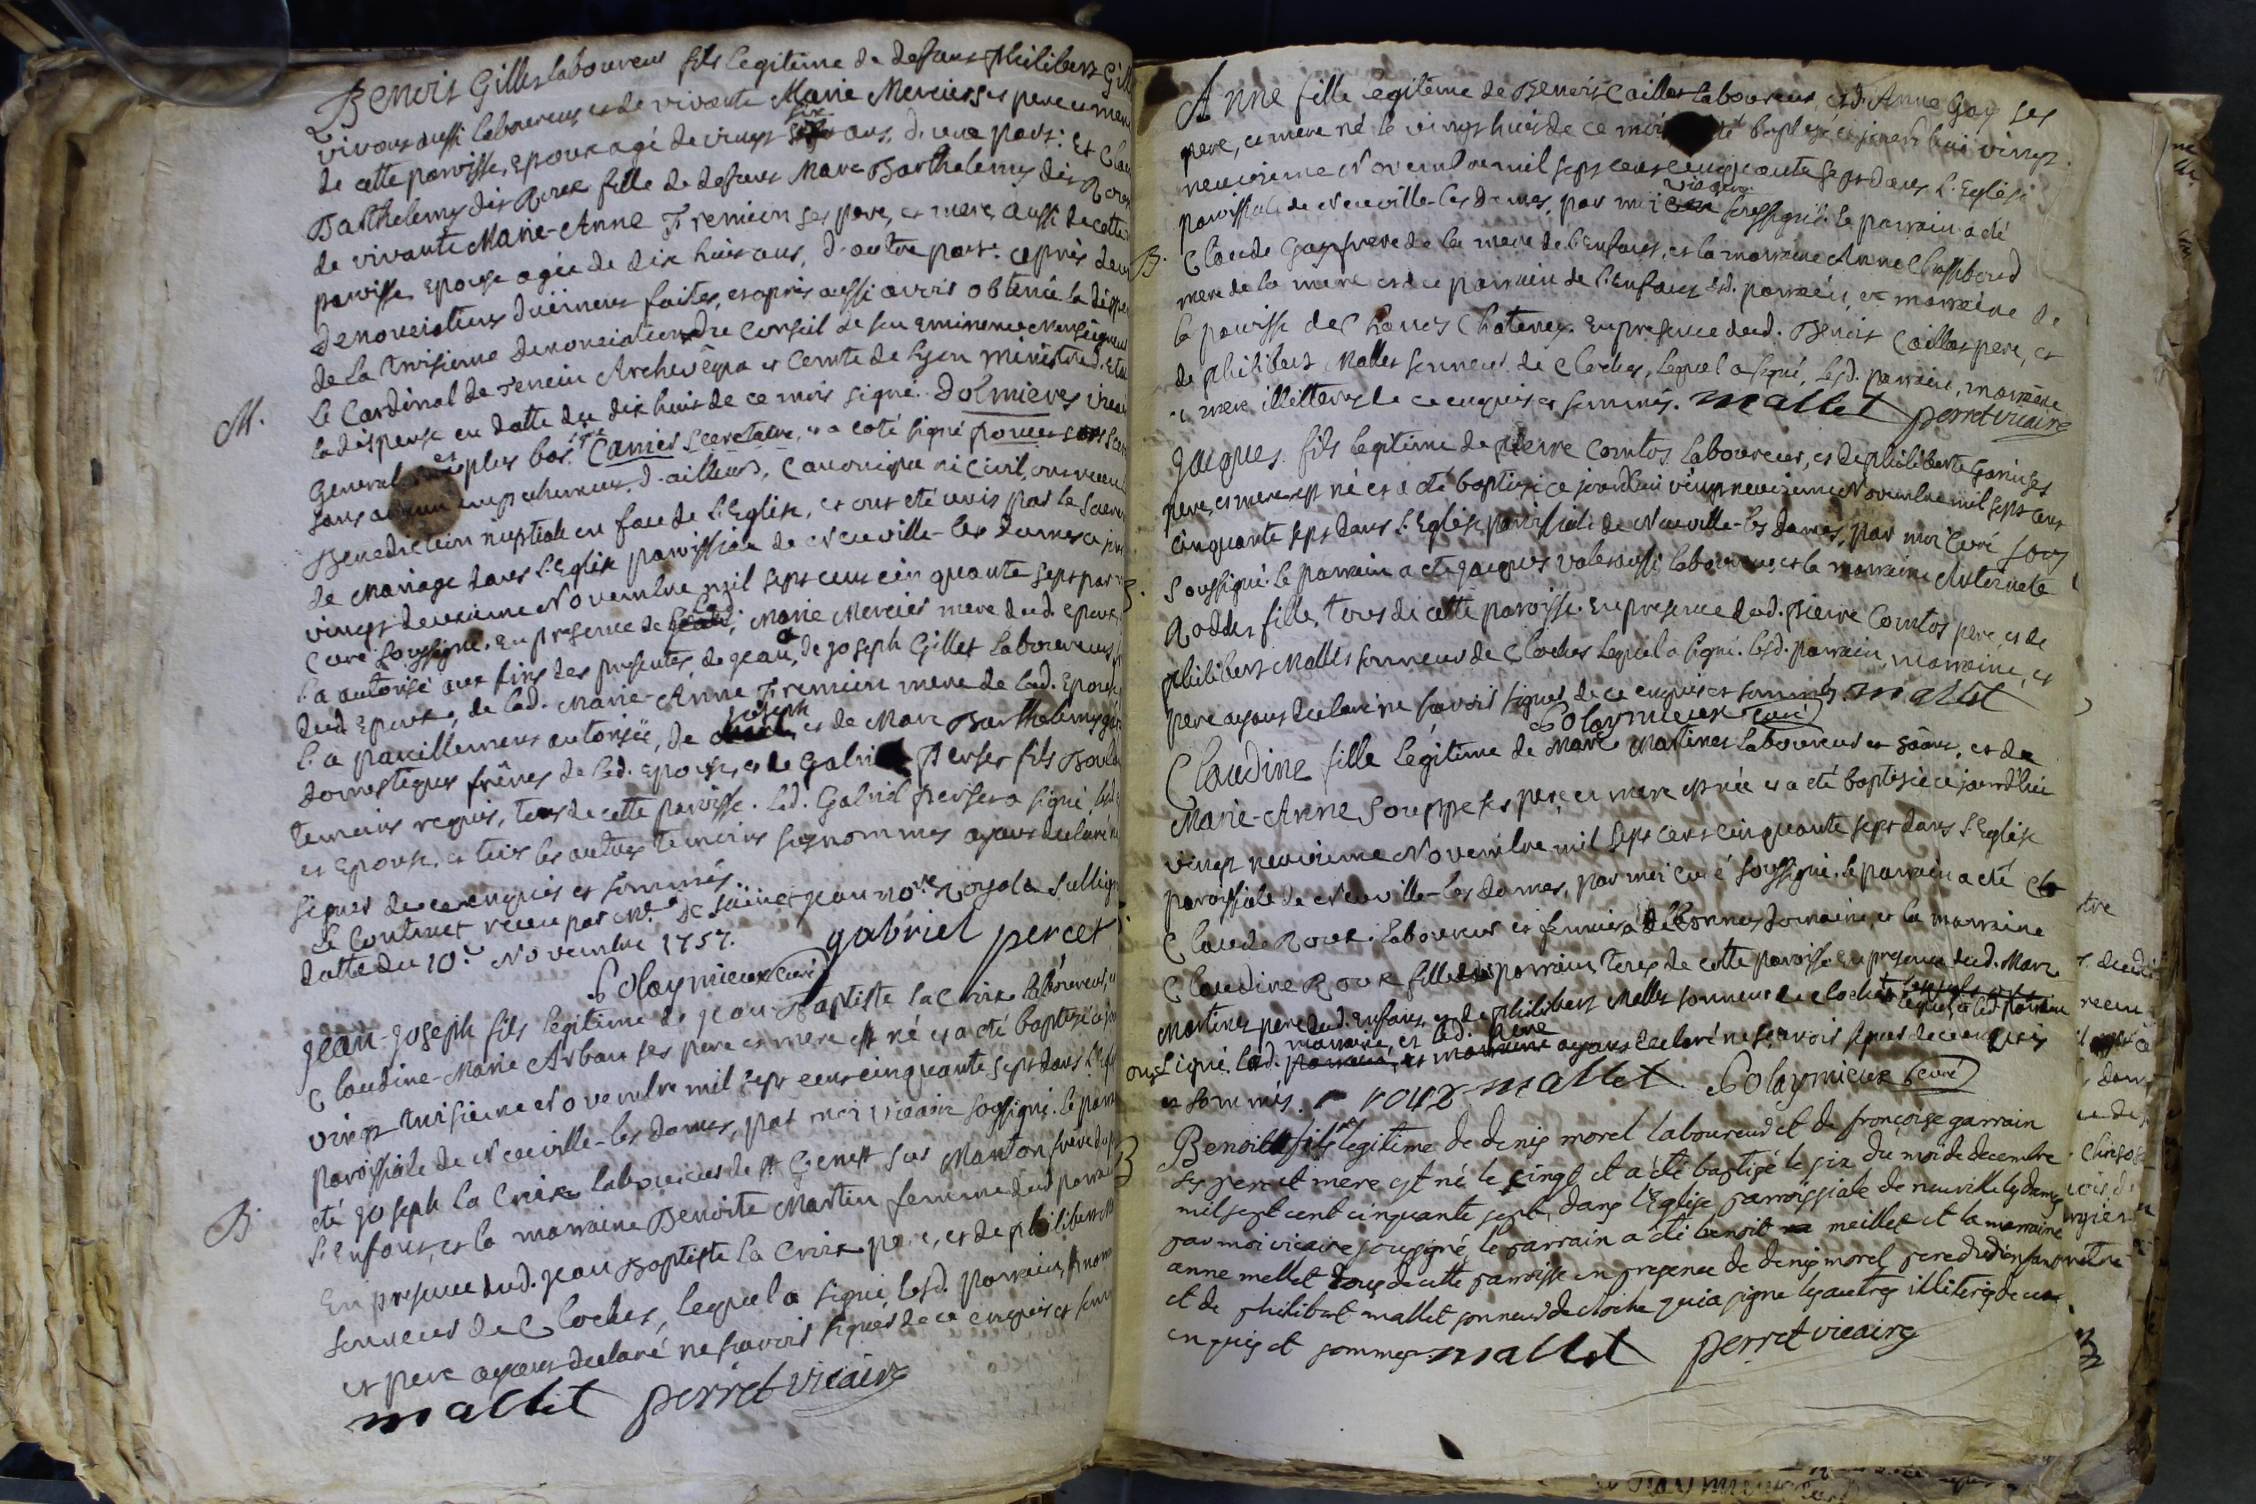 Benoit Gillet laboureur fils legitime de defunt philibert Gill
vivant aussi laboureur et de vivante Marie Mercier ses pere et mere
de cette paroisse, Epoux agé de vingt six ans, d'une part: Et Clau
Barthelemy dit Roux fille de defunt Marc Barthelemy dit Roux
de vivante Marie-Anne Fremion ses pere, et mere, aussi de cette
paroisse Epouse agée de dix huit ans, d'autre part. après deux
denonciations duëment faites, et après aussi avoir obtenu la dispen
de la troisieme denonciation du Conseil de son Eminence Monseigneur
M.
Le Cardinal de Tencin Archevêque et Comte de Lyon ministre d'Etat
la dispense en datte du dix huit de ce mois signé. Dolmieres vicai
General et plus bas Carrier Secretaire, et a coté signé
sans aucun empechement d'ailleurs, Canonique ni Civil, ont receu
Benediction nuptiale en face de L'Eglise, et ont eté unis par le Sacre
de Mariage dans L'Eglise paroissiale de Neuville-les dames ce jour
vingt deuxieme Novembre mil sept cent cinquante sept par
Curé soussigné. En presence de Marie Mercier mere dud. epoux,
l'a autorisé aux fins des presentes, de jean, de joseph Gillet laboureurs
dud. Epoux, de lad. Marie-Anne Fremion mere de lad. Epouse
l'a pareillement autorisée, de joseph, et de Marc Barthelemy
domestiques freres de lad. Epouse, et de Gabriel Perset fils
temoins requis, tous de cette paroisse. led. Gabriel perset a signé, lesd
et Epouse, et tous les autres temoins susnommes ayant declaré
signer de ce enquis et sommés
Le Contract receu par Me. De Saint jean nore. Royal a Sullign
datte du 10e. Novembre 1757.
gabriel percet
Polaymieux Curé
Jean-joseph fils legitime de jean-Baptiste La Croix laboureur, et
Claudine-Marie Arban ses pere et mere est né et a eté baptisé ce jour
vingt troisieme Novembre mil sept cent cinquante sept dans L'Egl
paroissiale de Neuville-les dames, par moi vicaire soussigné. Le parrain
B.
eté joseph la Croix laboureur de St Genest sur Manton frere du p
L'Enfant, et la marraine Benoite Martin femme dud. parrain
En presence dud. jean Baptiste La Croix pere, et de philibert M
sonneur de Cloches, lequel a signé lesd. parrain,
et pere ayant declaré ne sçavoir signer de ce enquis et som
mallet perret vicaire
Anne fille legitime de Benoit Caillat laboureur, et d'Anne Gay ses
pere, et mere né le vingt huit de ce mois baptisé ce jourd'hui vingt
neuvieme Novembre mil sept cent cinquante sept dans L'Eglise
paroissiale de Neuville-les dames, par moi vicaire soussigné. le parrain a eté
B.
Claude Gay frere de la mere de L'Enfant, et la marraine Anne Chassiboud
mere de la mere et du parrain de L'Enfant lesd. parrain, et marraine de
la paroisse de Chanoz Chatenay. En presence dud. Benoit Caillat pere, et
de philibert Mallet sonneur de Cloches, Lequel a signé, lesd. parrain, marraine
mere illettrés de ce enquis et sommés. mallet perret vicaire
Jacques fils legitime de pierre Comtos laboureur, et de philiberte Garin ses
pere, et mere est né et a eté baptisé ce jourd'hui vingt neuvieme Novembre mil sept cent
cinquante sept dans L'Eglise paroissiale de Neuville-les dames, par moi Curé sous
soussigné. Le parrain a eté jacques valet aussi laboureur, et la marraine Anternete
Roddet fille, tous de cette paroisse. En presence dud. Pierre Comtos pere, et de
philibert Mallet sonneur de Cloches lequel a signé. lesd. parrain, marraine, et
pere ayant declaré ne savoir signer de ce enquis et sommés. mallet
Polaymieux Curé
Claudine fille Légitime de Marc Martinet laboureur et
Marie-Anne Souppe ses pere et mere est née et a eté baptisée ce jourd'hui
vingt neuvieme Novembre mil sept cent cinquante sept dans L'Eglise
paroissiale de Neuville-les dames, par moi Curé soussigné. le parrain a eté
Claude Roux laboureur et fermier domaine, et la marraine
Claudine Roux fille parrain, tous de cette paroisse. En presence dud. Marc
Martinet pere dud. Enfant, et de philibert Mallet sonneur de cloches lequel, et led. Parrain
ont signé, lad. marraine, et led. pere ayant declaré ne sçavoir signer de ce enquis
et sommés. roux mallet Polaymieux Curé
Benoit fils legitime de denis morel laboureur et de françoise garrain
ses pere et mere est né le cinq et a été baptisé le six du mois de decembre
mil sept cent cinquante sept, dans l'Eglise parroissiale de neuville les dames
par moi vicaire sousigné, le parrain a été benoit meillet et la marraine
anne mellet tous de cette parroisse en presence de denis morel pere dud enfant
et de philibert mallet sonneur de cloche qui a signé les autres illiterés de ce
enquis et sommes. mallet perret vicaire